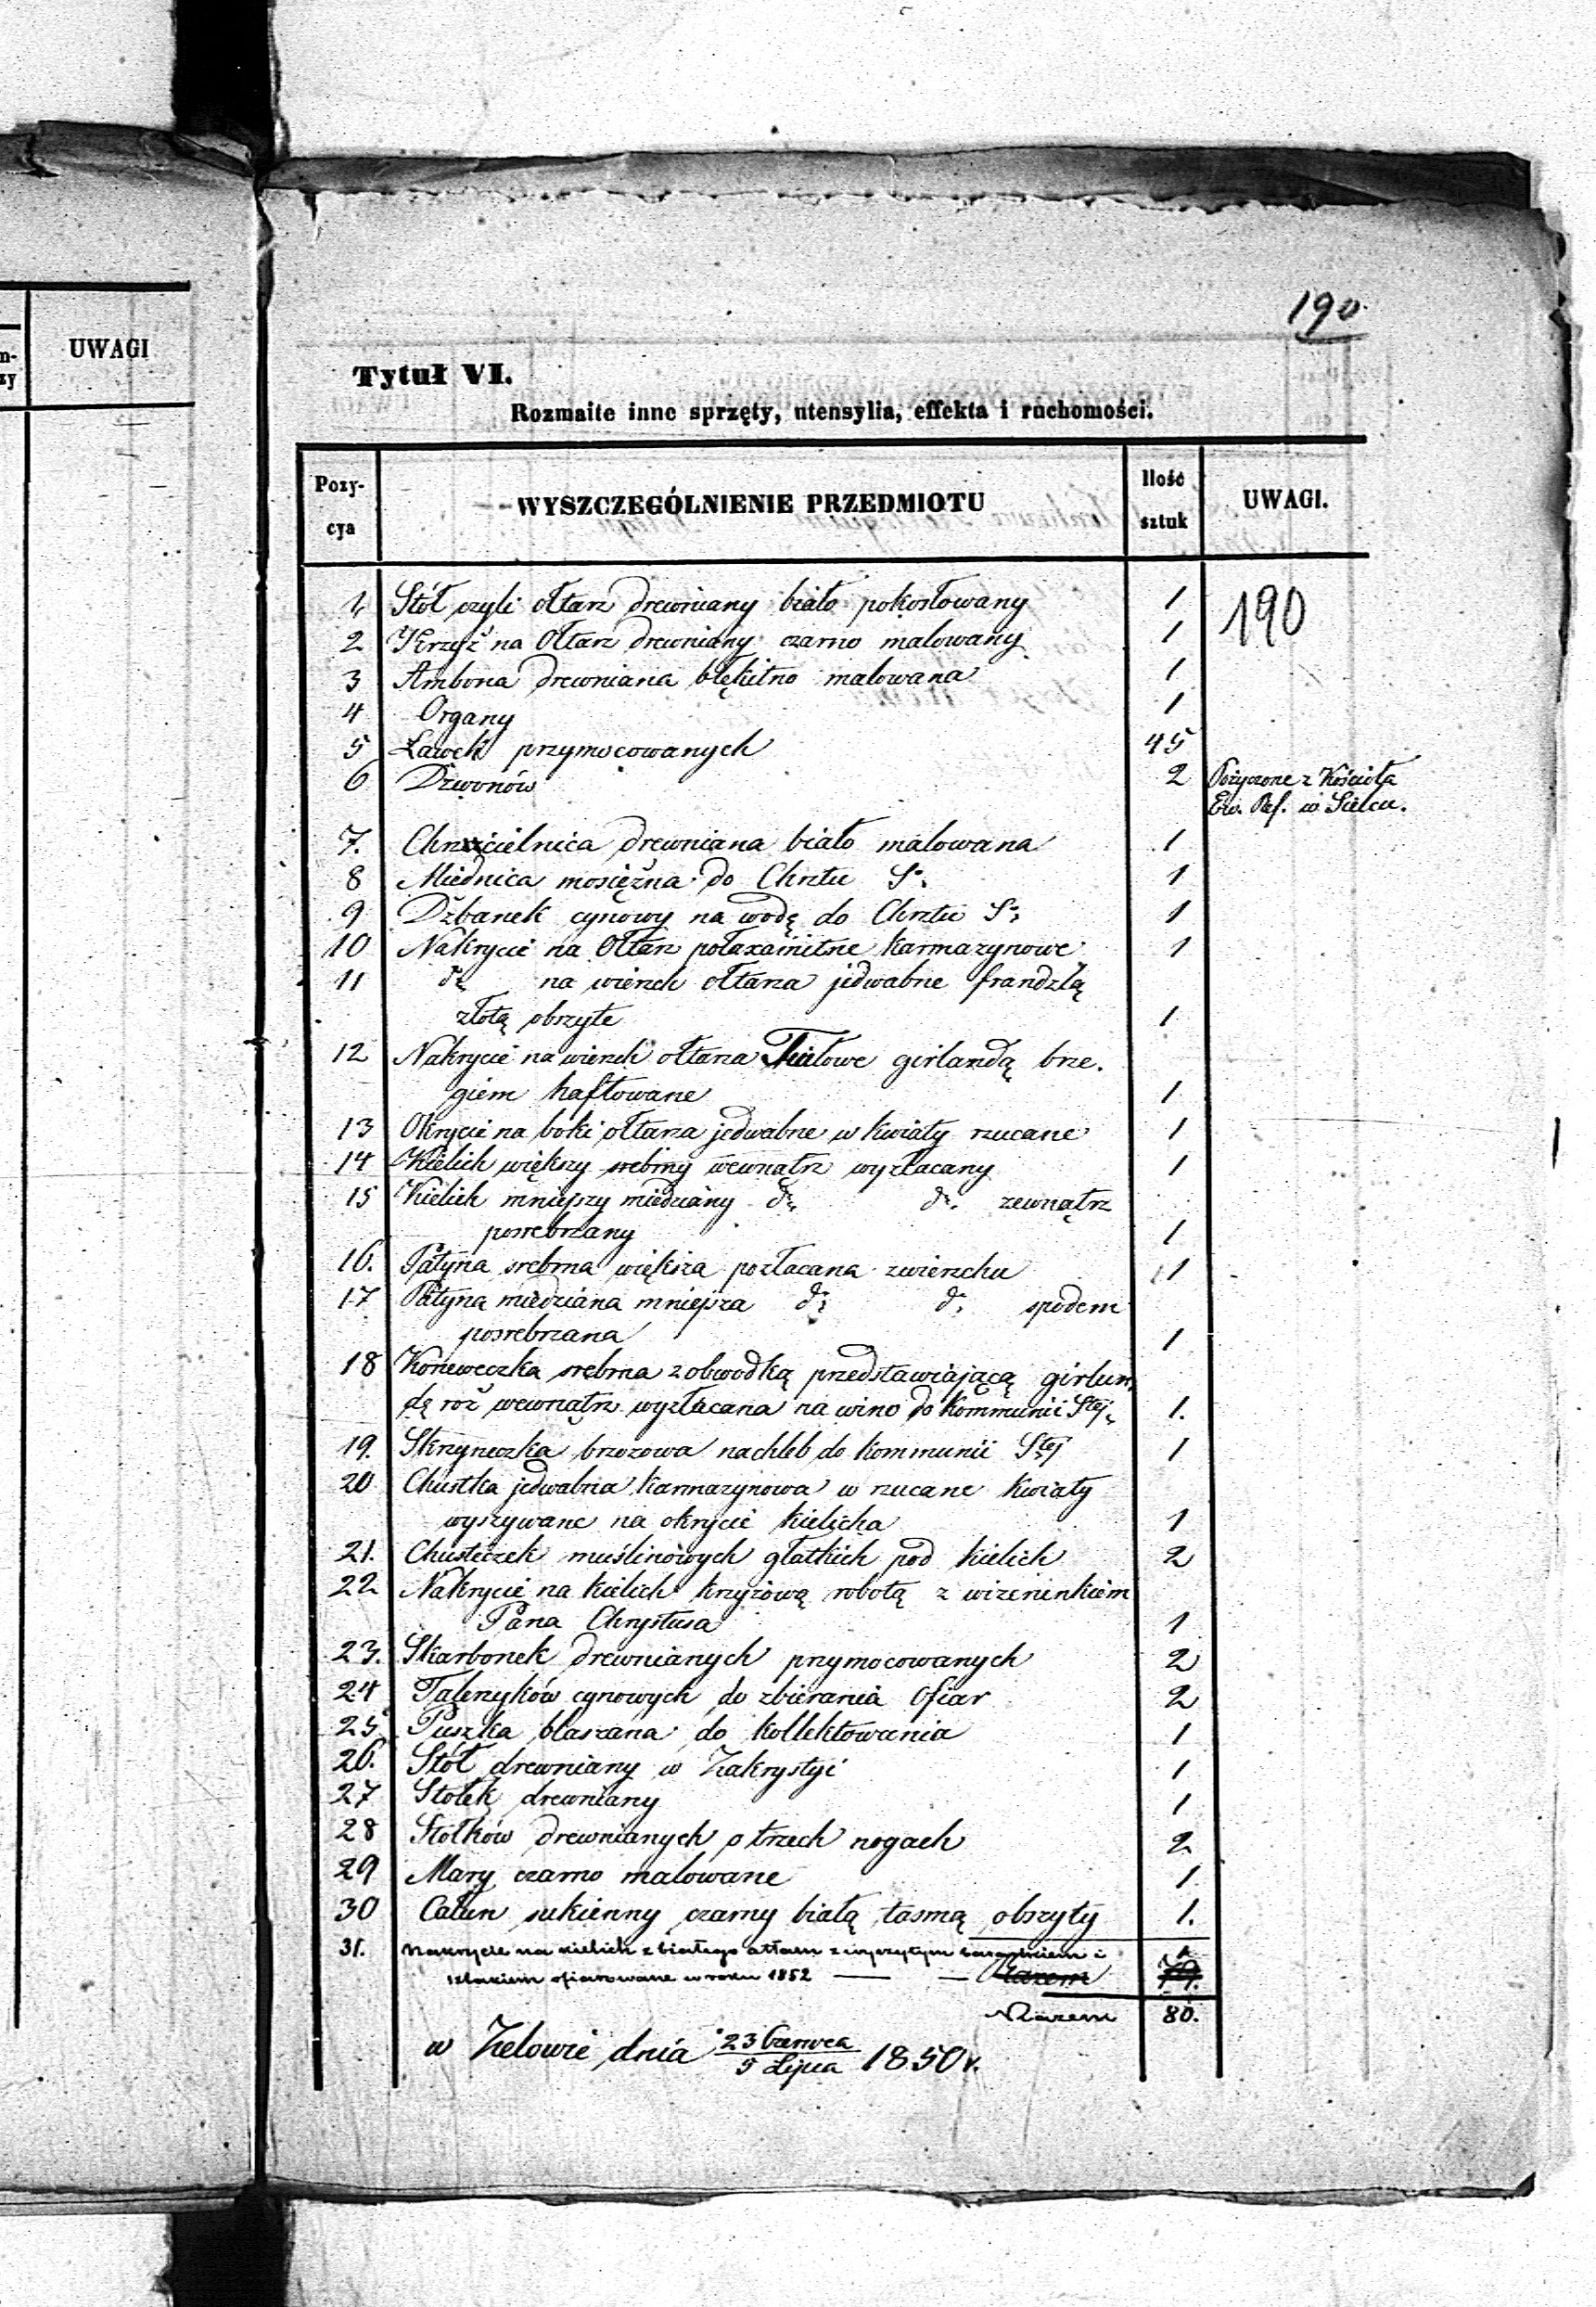 UWAGI
190
Tytuł VI.
Rozmaite inne sprzęty, utensylia, effekta i ruchomości.
Pozy-cya WYSZCZEGÓLNIENIE PRZEDMIOTU Ilość sztuk UWAGI.
190
1, Stół czyli ołtarz drewniany biało pokostowany 1
2 Krzyż na Ołtarz drewniany czarno malowany 1
3 Ambona drewniana błękitno malowana 1
4 Organy 1
5 Ławek przymocowanych 45
6 Dzwonów 2 Pożyczone z Kościoła
Ew. Ref. w Sielcu.
7. Chrzcielnica drewniana biało malowana 1
8 Miednica mosiężna do Chrztu S.
1
9 Dzbanek cynowy na wodę do Chrztu S. 1
10 Nakrycie na Ołtarz półaxamitne karmazynowe 1
11 do na wierzch ołtarza jedwabne frandzlą
złotą obszyte 1
12 Nakrycie na wierzch ołtarza Tiulowe girlandą brze.
giem haftowane 1
13 Okrycie na boki ołtarza jedwabne w kwiaty rzucane 1
14 Kielich większy srebrny wewnątrz wyzłacany 1
15 Kielich mniejszy miedziany do do. zewnątrz
posrebrzany 1
16. Patyna srebrna większa pozłacana zwierzchu 1
17 Patyna miedziana mniejsza do do spodem
posrebrzana 1
18 Koneweczka srebrna z obwodką przedstawiającą girlan,
dę róż wewnątrz wyzłacana na wino do Kommunii Stej 1.
19. Skrzyneczka brzozowa na chleb do kommunii Stej 1
20 Chustka jedwabna karmazynowa w rzucane kwiaty
wyszywane na okrycie kielicha 1
21. Chusteczek muślinowych gładkich pod kielich 2
22 Nakrycie na kielich krzyżową robotą z wizerunkiem
Pana Chrystusa 1
23. Skarbonek drewnianych przymocowanych 2
24 Talerzyków cynowych do zbierania Ofiar 2
25 Puszka blaszana do kollektowania 1
26. Stół drewniany w Zakrystyi 1
27 Stołek drewniany 1
28 Stołków drewnianych o trzech nogach 2
29 Mary czarno malowane 1
30 Całun sukienny czarny białą tasmą obszyty 1.
31. Nakrycie na kielich z białego atłasu z wyszytym barankiem i 1
szlakiem ofiarowane w roku 1852 — — Razem 79.
Razem 80.
w Zelowie dnia 23 Czerwca / 5 Lipca 1850 r.